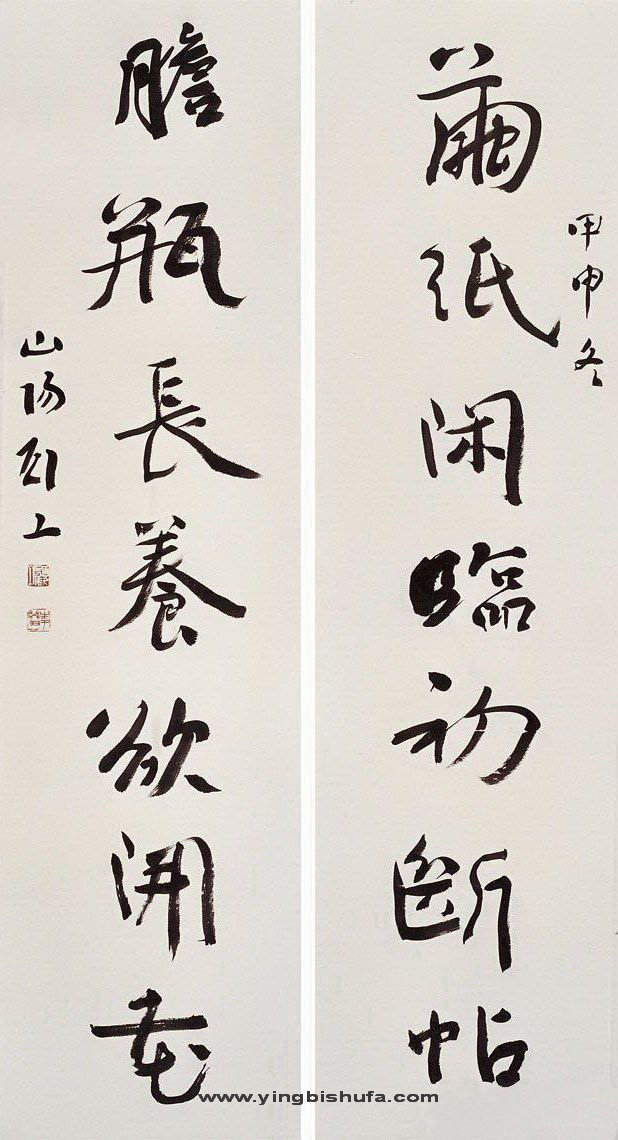 甲申冬
繭紙閑臨初斷帖
膽瓶長養欲開花
山陽
www.yingbishufa.com